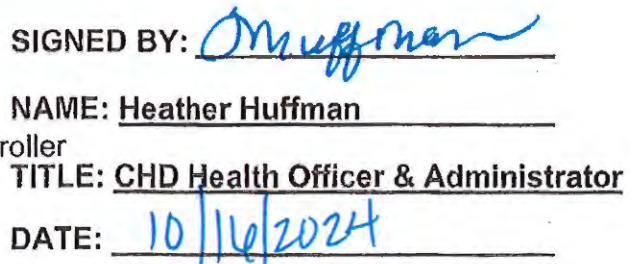 SIGNED BY:
NAME: Heather Huffman
roller
TITLE: CHD Health Officer & Administrator
DATE: 10/16/2024